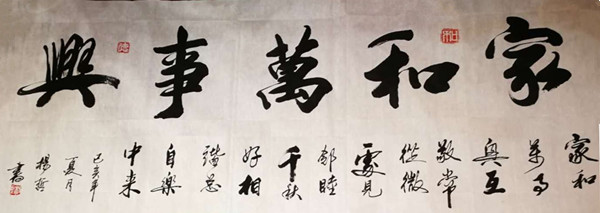 家和萬事興
家和
萬事
興互
敬常
從微
處見
鄰睦
千秋
好相
諧總
自樂
中来
己亥年
夏月
楊
書